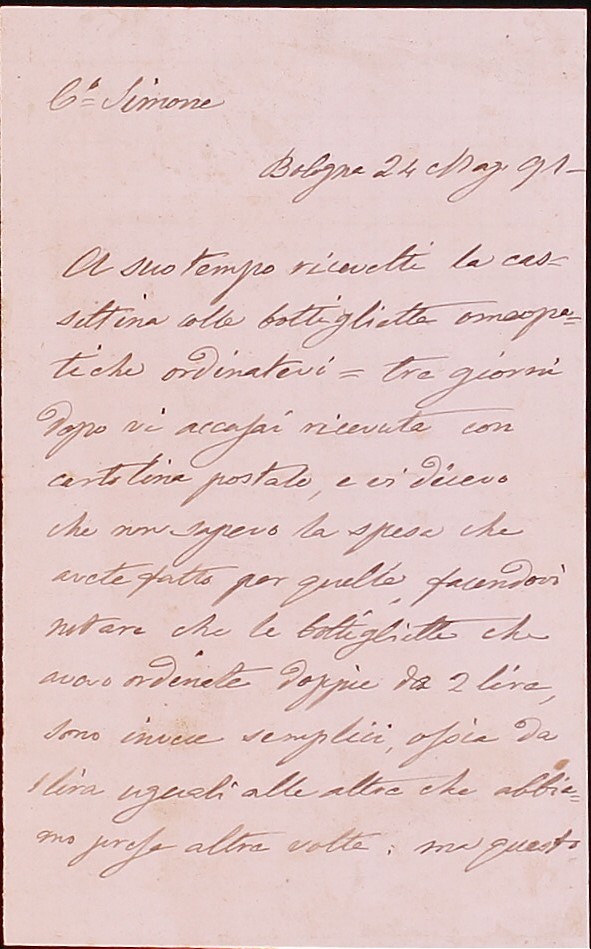 C.º Simone
Bologna 24 Mag. 91-
A suo tempo ricevetti la cas=
settina colle bottigliette omeopa=
tiche ordinatevi = tre giorni
dopo vi accusai ricevuta con
cartolina postale, e vi dicevo
che non sapevo la spesa che
avete fatto per quelle, facendovi
notare che le bottigliette che
avevo ordinate doppie da 2 lire,
sono invece semplici, ossia da
1 lira uguali alle altre che abbia=
mo prese altre volte: ma questo